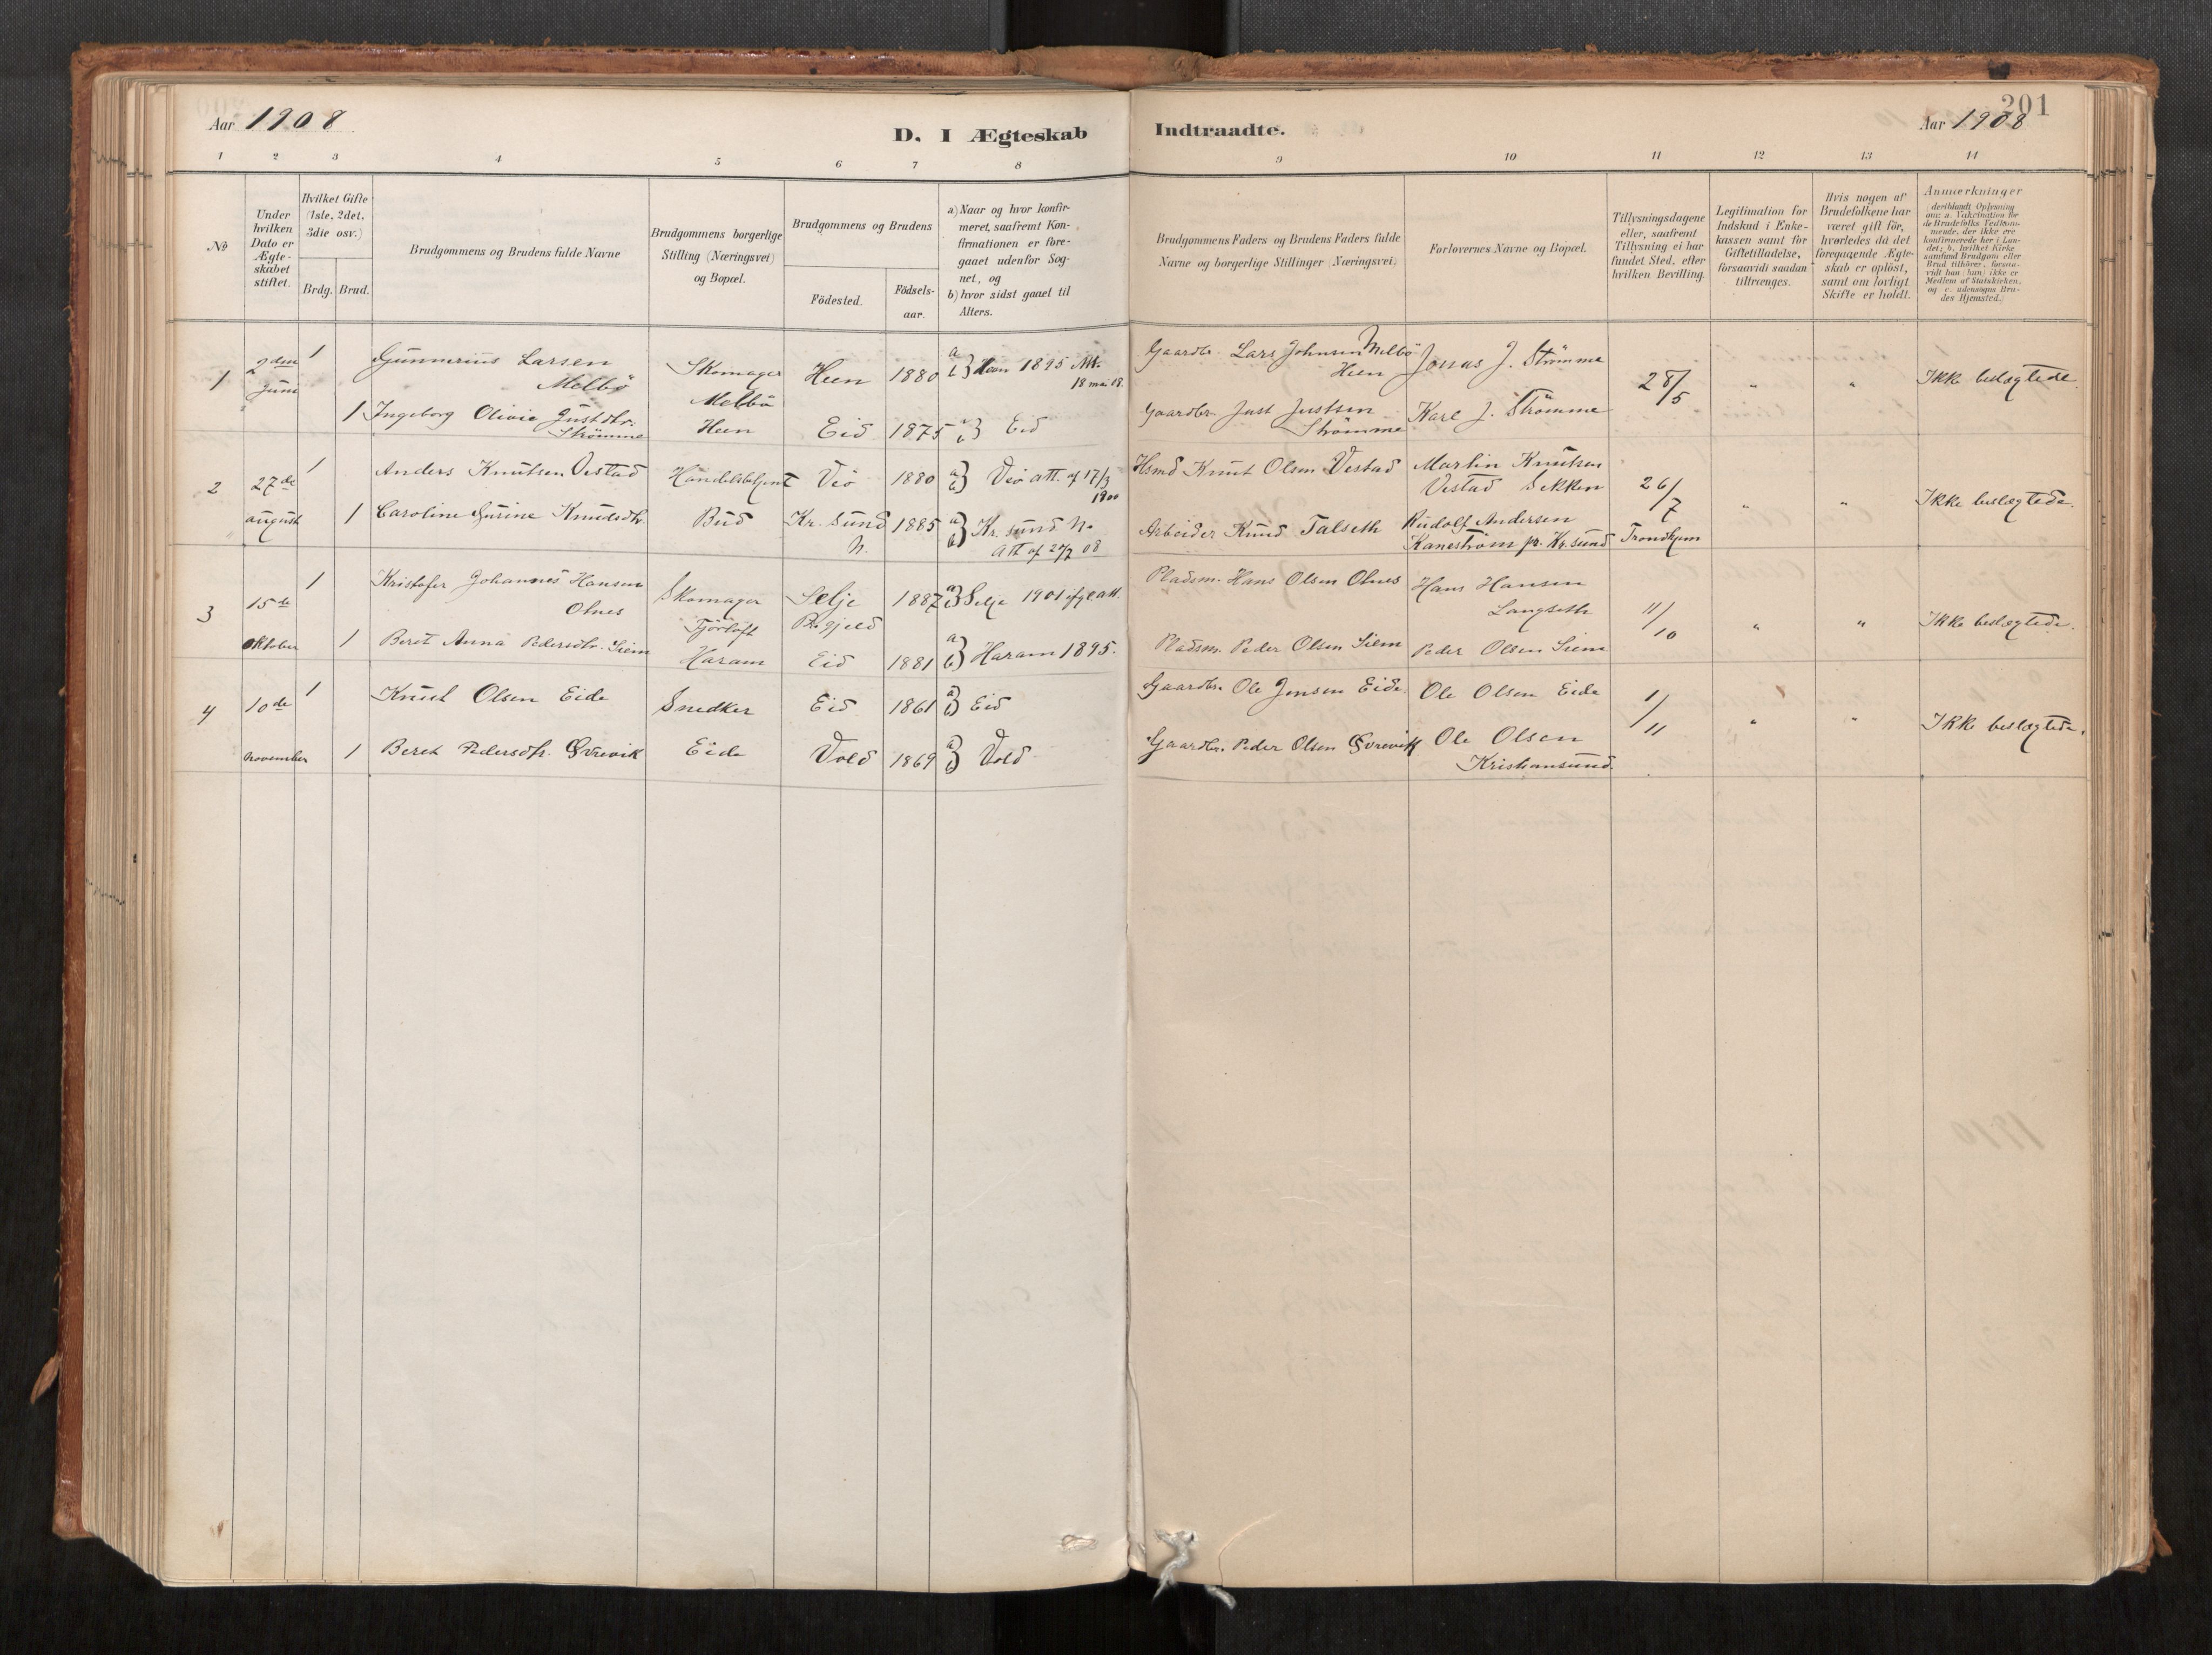 201
Aar 1908
D. I Ægteskab
Indtraadte.
Aar 1908
1 2 3 4 5 6 7 8 9 10 11 12 13 14
No
Under hvilken Dato er Ægteskabet stiftet.
Hvilket Gifte (1ste, 2det, 3die osv.)
Brdg. Brud.
Brudgommens og Brudens fulde Navne
Brudgommens borgerlige Stilling (Næringsvei) og Bopæl.
Brudgommens og Brudens
Födested.
Födsels-aar.
a) Naar og hvor konfirmeret, saafremt Konfirmationen er foregaaet udenfor Sognet, og
b) hvor sidst gaaet til Alters.
Brudgommens Faders og Brudens Faders fulde Navne og borgerlige Stillinger (Næringsvei)
Forlovernes Navne og Bopæl.
Tillysningsdagene eller, saafremt Tillysning ei har fundet Sted, efter hvilken Bevilling.
Legitimation for Indskud i Enkekassen samt for Giftetilladelse, forsaavidt saadan tiltrænges.
Hvis nogen af Brudefolkene har været gift för, hvorledes da det foregaaende Ægteskab er oplöst, samt om lovligt Skifte er holdt.
Anmærkninger (deriblandt Oplysning om: a. Vakcination for de Brudefolks Vedkommende, der ikke ere konfirmerede her i Landet; b. hvilket Kirkesamfund Brudgom eller Brud tilhörer, forsaavidt han (hun) ikke er Medlem af Statskirken, og c. udensogns Brudes Hjemsted.)
1 2den 1 Gunnerius Larsen Skomager Heen 1880 a b} Heen 1895 Att. Gaardbr. Lars Johnsen Melbö Jonas J. Strömme 28/5 " " Ikke beslægtede.
Juni Melbö Melbö 18 mai 08. Heen
1 Ingeborg Olivie Justdtr. Heen Eid 1875 a b} Eid Gaardbr. Just Justsen Karl J. Strömme
Strömme Strömme
2 27de 1 Anders Knutsen Vestad Handelsbetjent Veö 1880 a b} Veö att. af 17/3 Hsmd Knut Olsen Vestad Martin Knutsen 26/7 " " Ikke beslægtede.
1900 Vestad Sekken
august 1 Caroline Gurine Knudsdtr. Bud Kr. sund 1885 a b} Kr. sund N. Arbeider Knud Talseth Rudolf Andersen Trondhjem
N. Att af 20/7 08 Kaneström pr. Kr.sund
3 15de 1 Kristofer Johannes Hansen Skomager Selje 1887 a b} Selje 1901 ifge att. Pladsm. Hans Olsen Olnes Hans Hansen 11/10 " " Ikke beslægtede.
Olnes Fjörtoft Pr.gjeld Langseth
Oktober 1 Beret Anna Pedersdtr. Siem Haram Eid 1881 a b} Haram 1895. Pladsm. Peder Olsen Siem Peder Olsen Siem
4 10de 1 Knut Olsen Eide Snedker Eid 1861 a b} Eid Gaardbr. Ole Jensen Eide Ole Olsen Eide 1/11 " " Ikke beslægtede.
november 1 Beret Pedersdtr.Övrevik Eide Vold 1869 a b} Vold Gaardbr. Peder Olsen Övrevik Ole Olsen
Kristiansund.